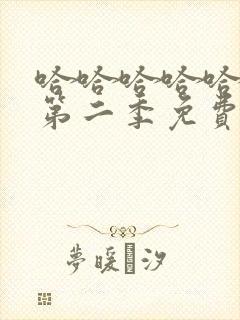 哈哈哈哈哈
第二季免費
夢暖汐